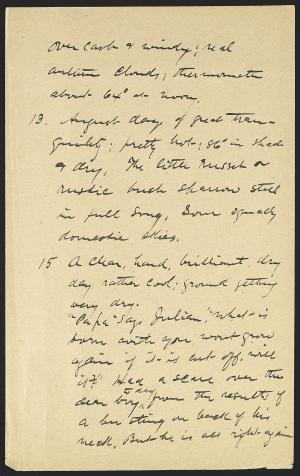 over cast & windy; real
autumn clouds; thermometer
about 64° at noon.
13. August day of great tran-
quility; pretty hot; 86° in shade
& dry. The little russet or
rustic bush sparrow still
in full song. Some squally
domestic skies.
15 A clear, hard, brilliant dry
day, rather cool; ground getting
very dry.
"Papa" says Julian, "what is
born with you, wont grow
again if it is cut off, will
it?" Had a scare over the
dear boy, to day from the results of
a bee sting on back of his
neck. But he is all right again